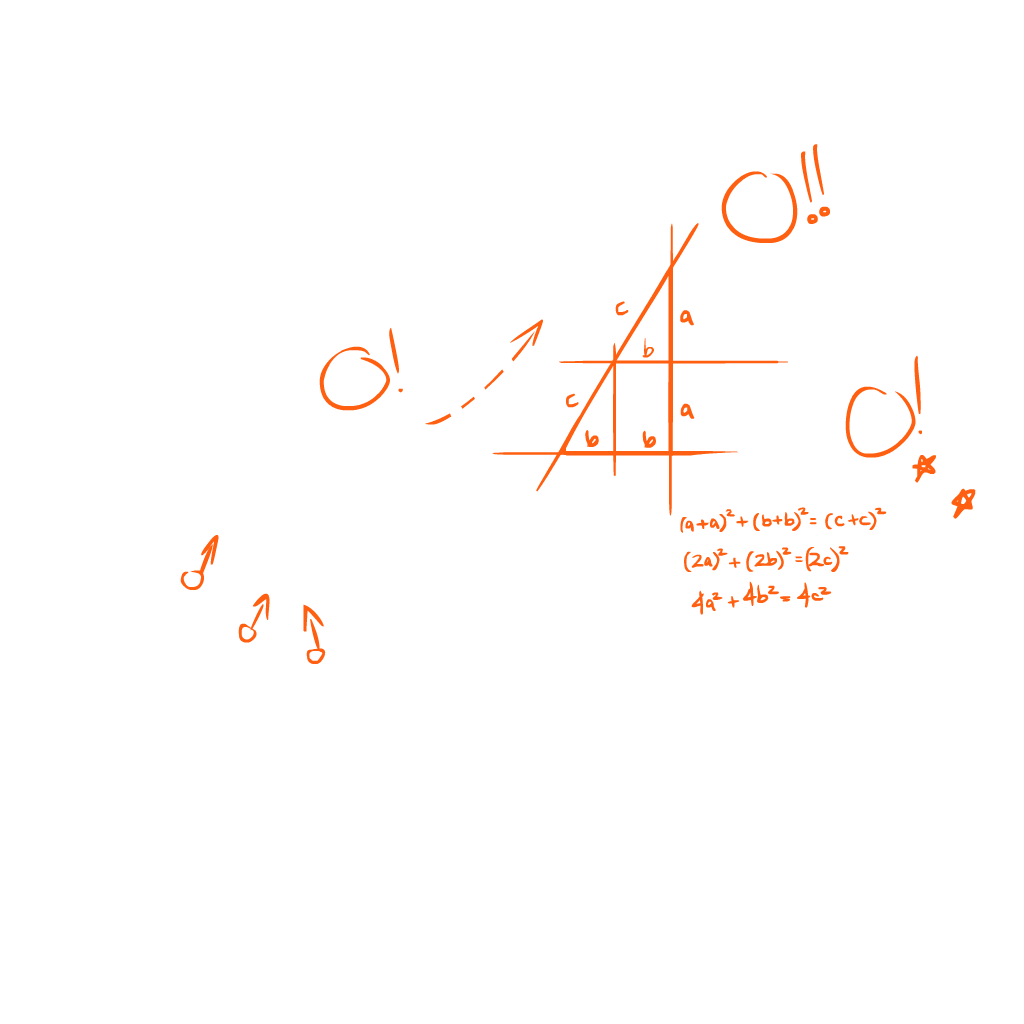 O!!
c
a
b
O!
c
a
b
b
O!
(a+a)²+(b+b)²=(c+c)²
(2a)²+(2b)²=(2c)²
4a²+4b²=4c²